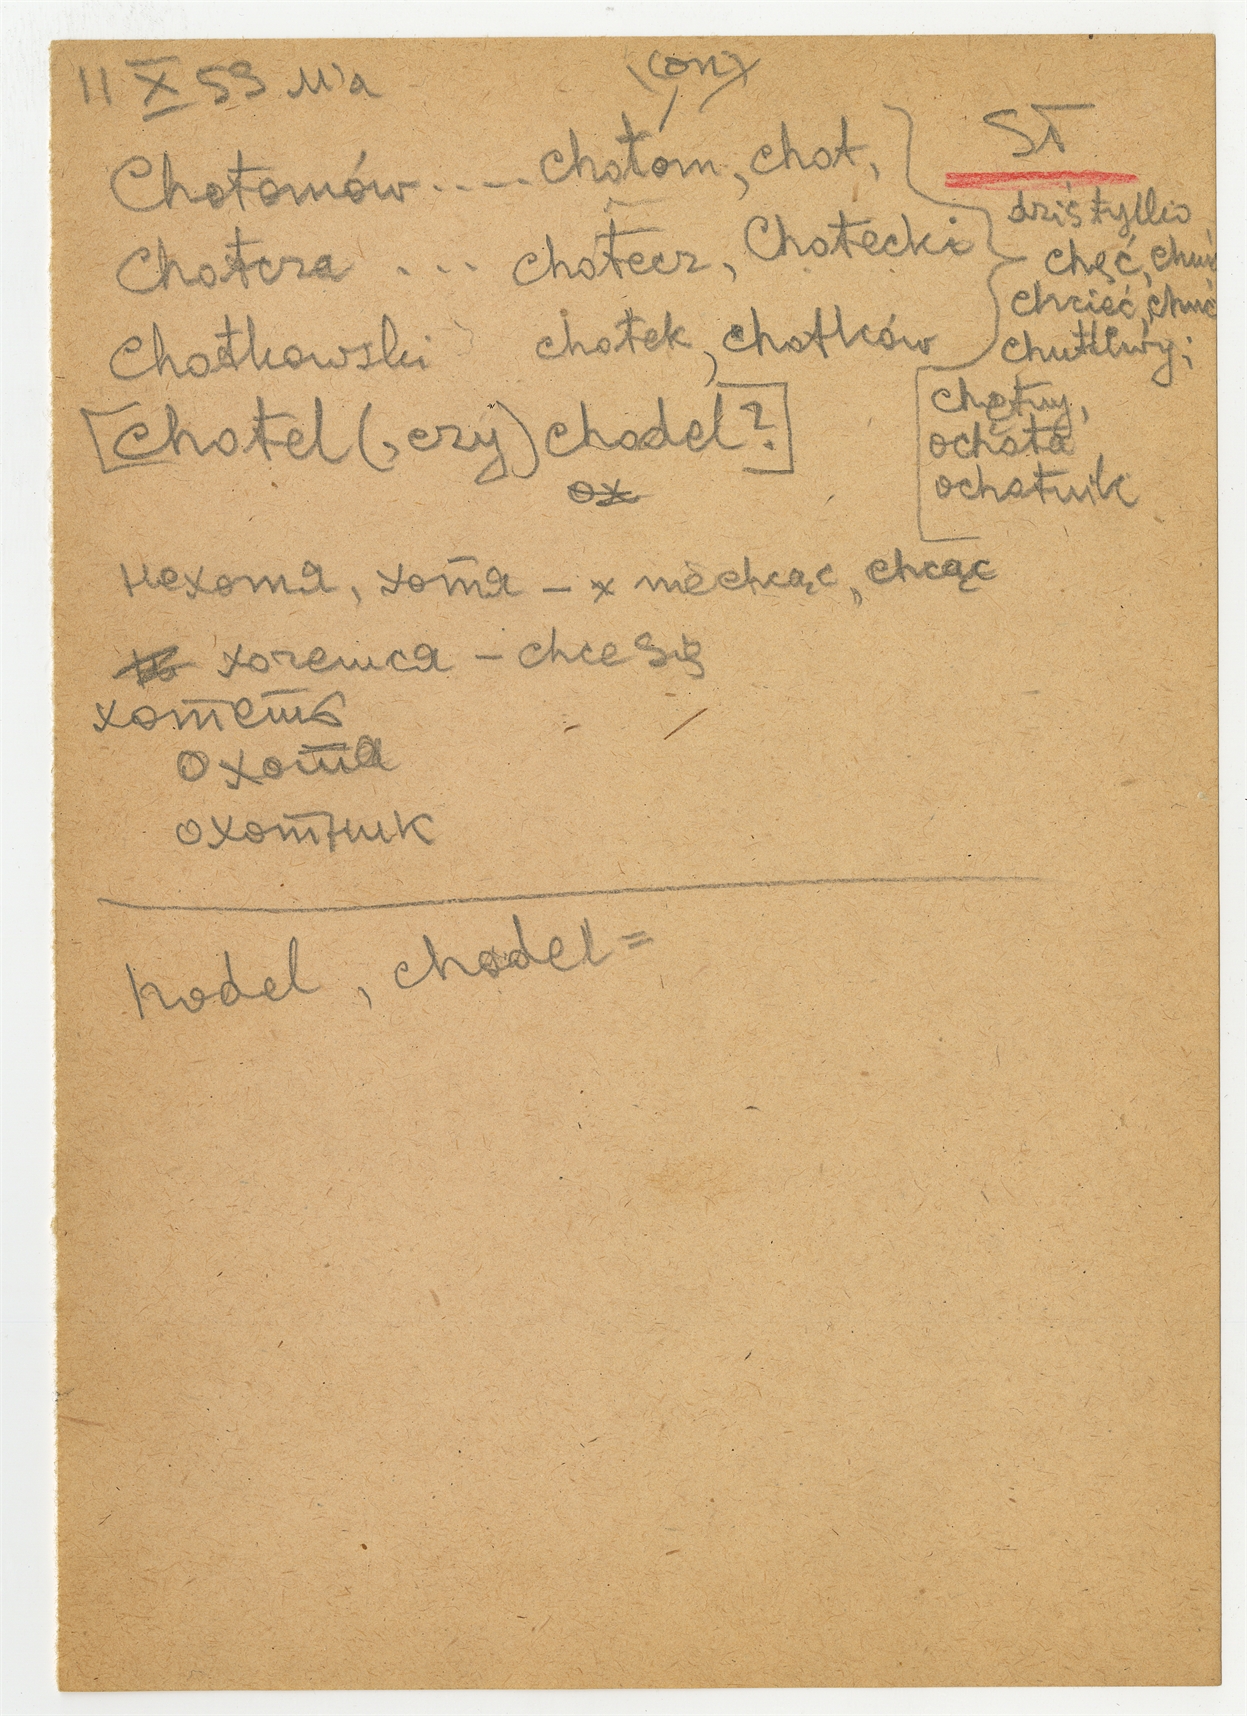 11 X 59 M'a
(on)
Chotomów ..... chotom, chot,
Chotcza ... chotecz, Chotecki
Chotkowski chotek, chotków
[Chotel (, czy) chodel?]
ST
dziś tylko
chęć, chuć
chcieć, chuć
chutliwy;
chętny,
ochota
ochotnik
нехотя, хотя – x niechcąc, chcąc
хочется – chce się
хотеть
охота
охотник
hodel, chodel =